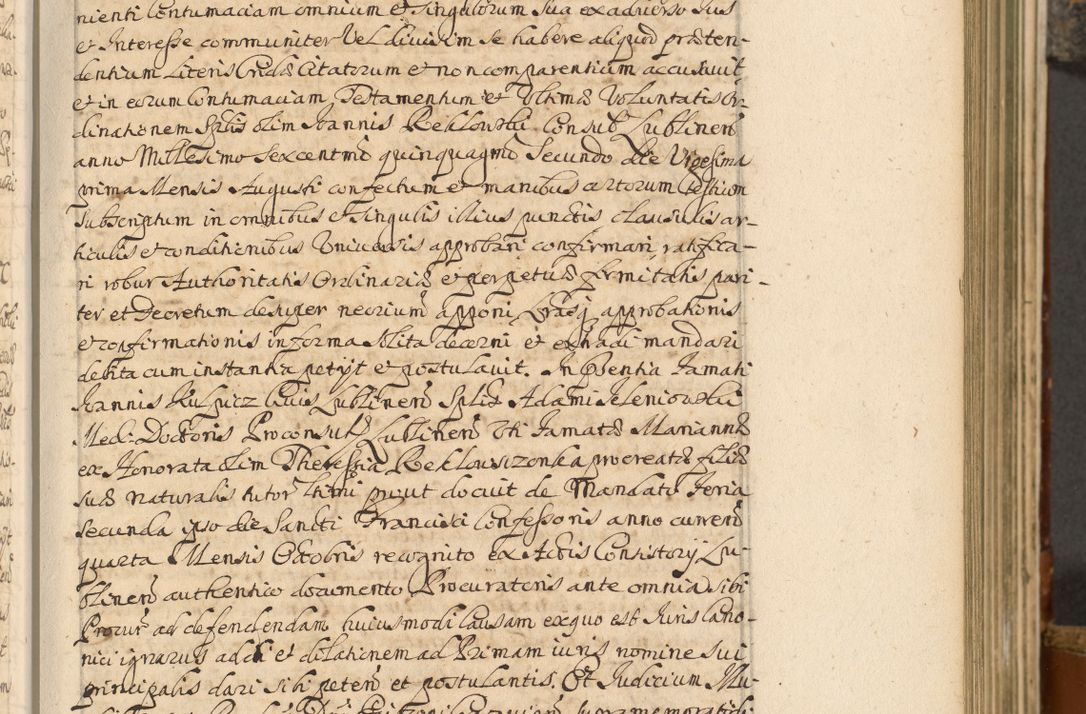 nienti Contumaciam omnium et Singulorum Sua ex adverso Jus
et Interesse communiter Vel divisim se habere aliquod præten-
dentium Literis Cridæ Citatorum et non comparentium accusavit
et in eorum Contumaciam Testamentum et Ultimæ Voluntatis Or-
dinationem Splis olim Joannis Reklowski Consul Lublinen
anno Millesimo Sexcentmo quinquagmo Secundo die Vigesima
prima Mensis Augusti confectum et manibus certorum Testium
Subscriptum in omnibus et Singulis illius punctis clausulis ar-
ticulis et conditionibus Universis approbari confirmari, ratifica-
ri robur Authoritatis Ordinariæ et perpetuæ firmitatis pari-
ter et Decretum desuper necrium apponi, approbationis
et confirmationis in forma solita decerni et extradi mandari
debita cum instantia petijt et postulavit. In Pntia Famati
Joannis Kulpicz Civis Lublinen Splis Adami Jeleniowski
Med: Doctoris Proconsulis Lublinen Uti Famatæ Mariannæ
ex Honorata olim Theressia Reklowiczonka procreatæ filiæ
suæ naturalis tutor ltimi prout docuit de Mandato Feria
Secunda ipso die Sancti Francisci Confessoris anno curren
quarta Mensis Octobris recognito ex Actis Consistorij Lu-
blinen authentico documento Procuratoris ante omnia sibi
Procur ad defendendam huiusmodi Causam ex quo est Juris Cano-
nici ignarus addi et dilationem ad Primam iuris nomine Sui
principalis dari sibi peten et postulantis. Et Judicium